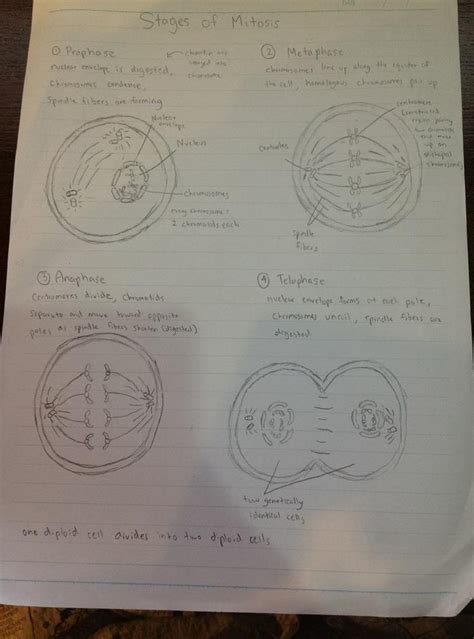 Stages of Mitosis
① Prophase
nuclear envelope is digested,
chromosomes condence,
spindle fibers are forming
chromatin into
Nuclear
envelope
Nucleus
Chromosomes
2 chromatids each
② Metaphase
chromosomes line up along the equator of
the cell, homologous chromosomes pair up
centromere
Centrioles
spindle
fibers
③ Anaphase
Centromeres divide, chromatids
separate and move toward opposite
poles as spindle fibers shorten (digested)
④ Telophase
nuclear envelope forms at each pole,
chromosomes uncoil, spindle fibers are
digested
two genetically
identical cells
one diploid cell divides into two diploid cells